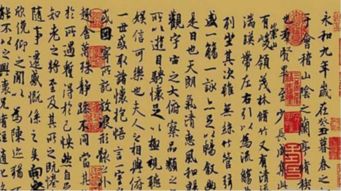 永和九年歲在癸丑暮春之
于會稽山陰之蘭亭脩
也群賢畢至少長咸集
有峻領茂林脩竹又有清
湍暎帶左右引以為流觴
列坐其次雖無絲竹管
盛一觴一詠亦足以暢敘幽
是日也天朗氣清惠風和
觀宇宙之大俯察品類
所以遊目騁懷足以極視聽
娛信可樂也夫人之相與俯
一世或取諸懷抱悟言一室
或因寄所託放浪形骸之
趣舍萬殊靜躁不同當
於所遇蹔得於己怏然自
知老之將至及其所之既
隨事遷感慨係之矣向
欣俛仰之間以為陳迹猶
能不以之興懷況脩短